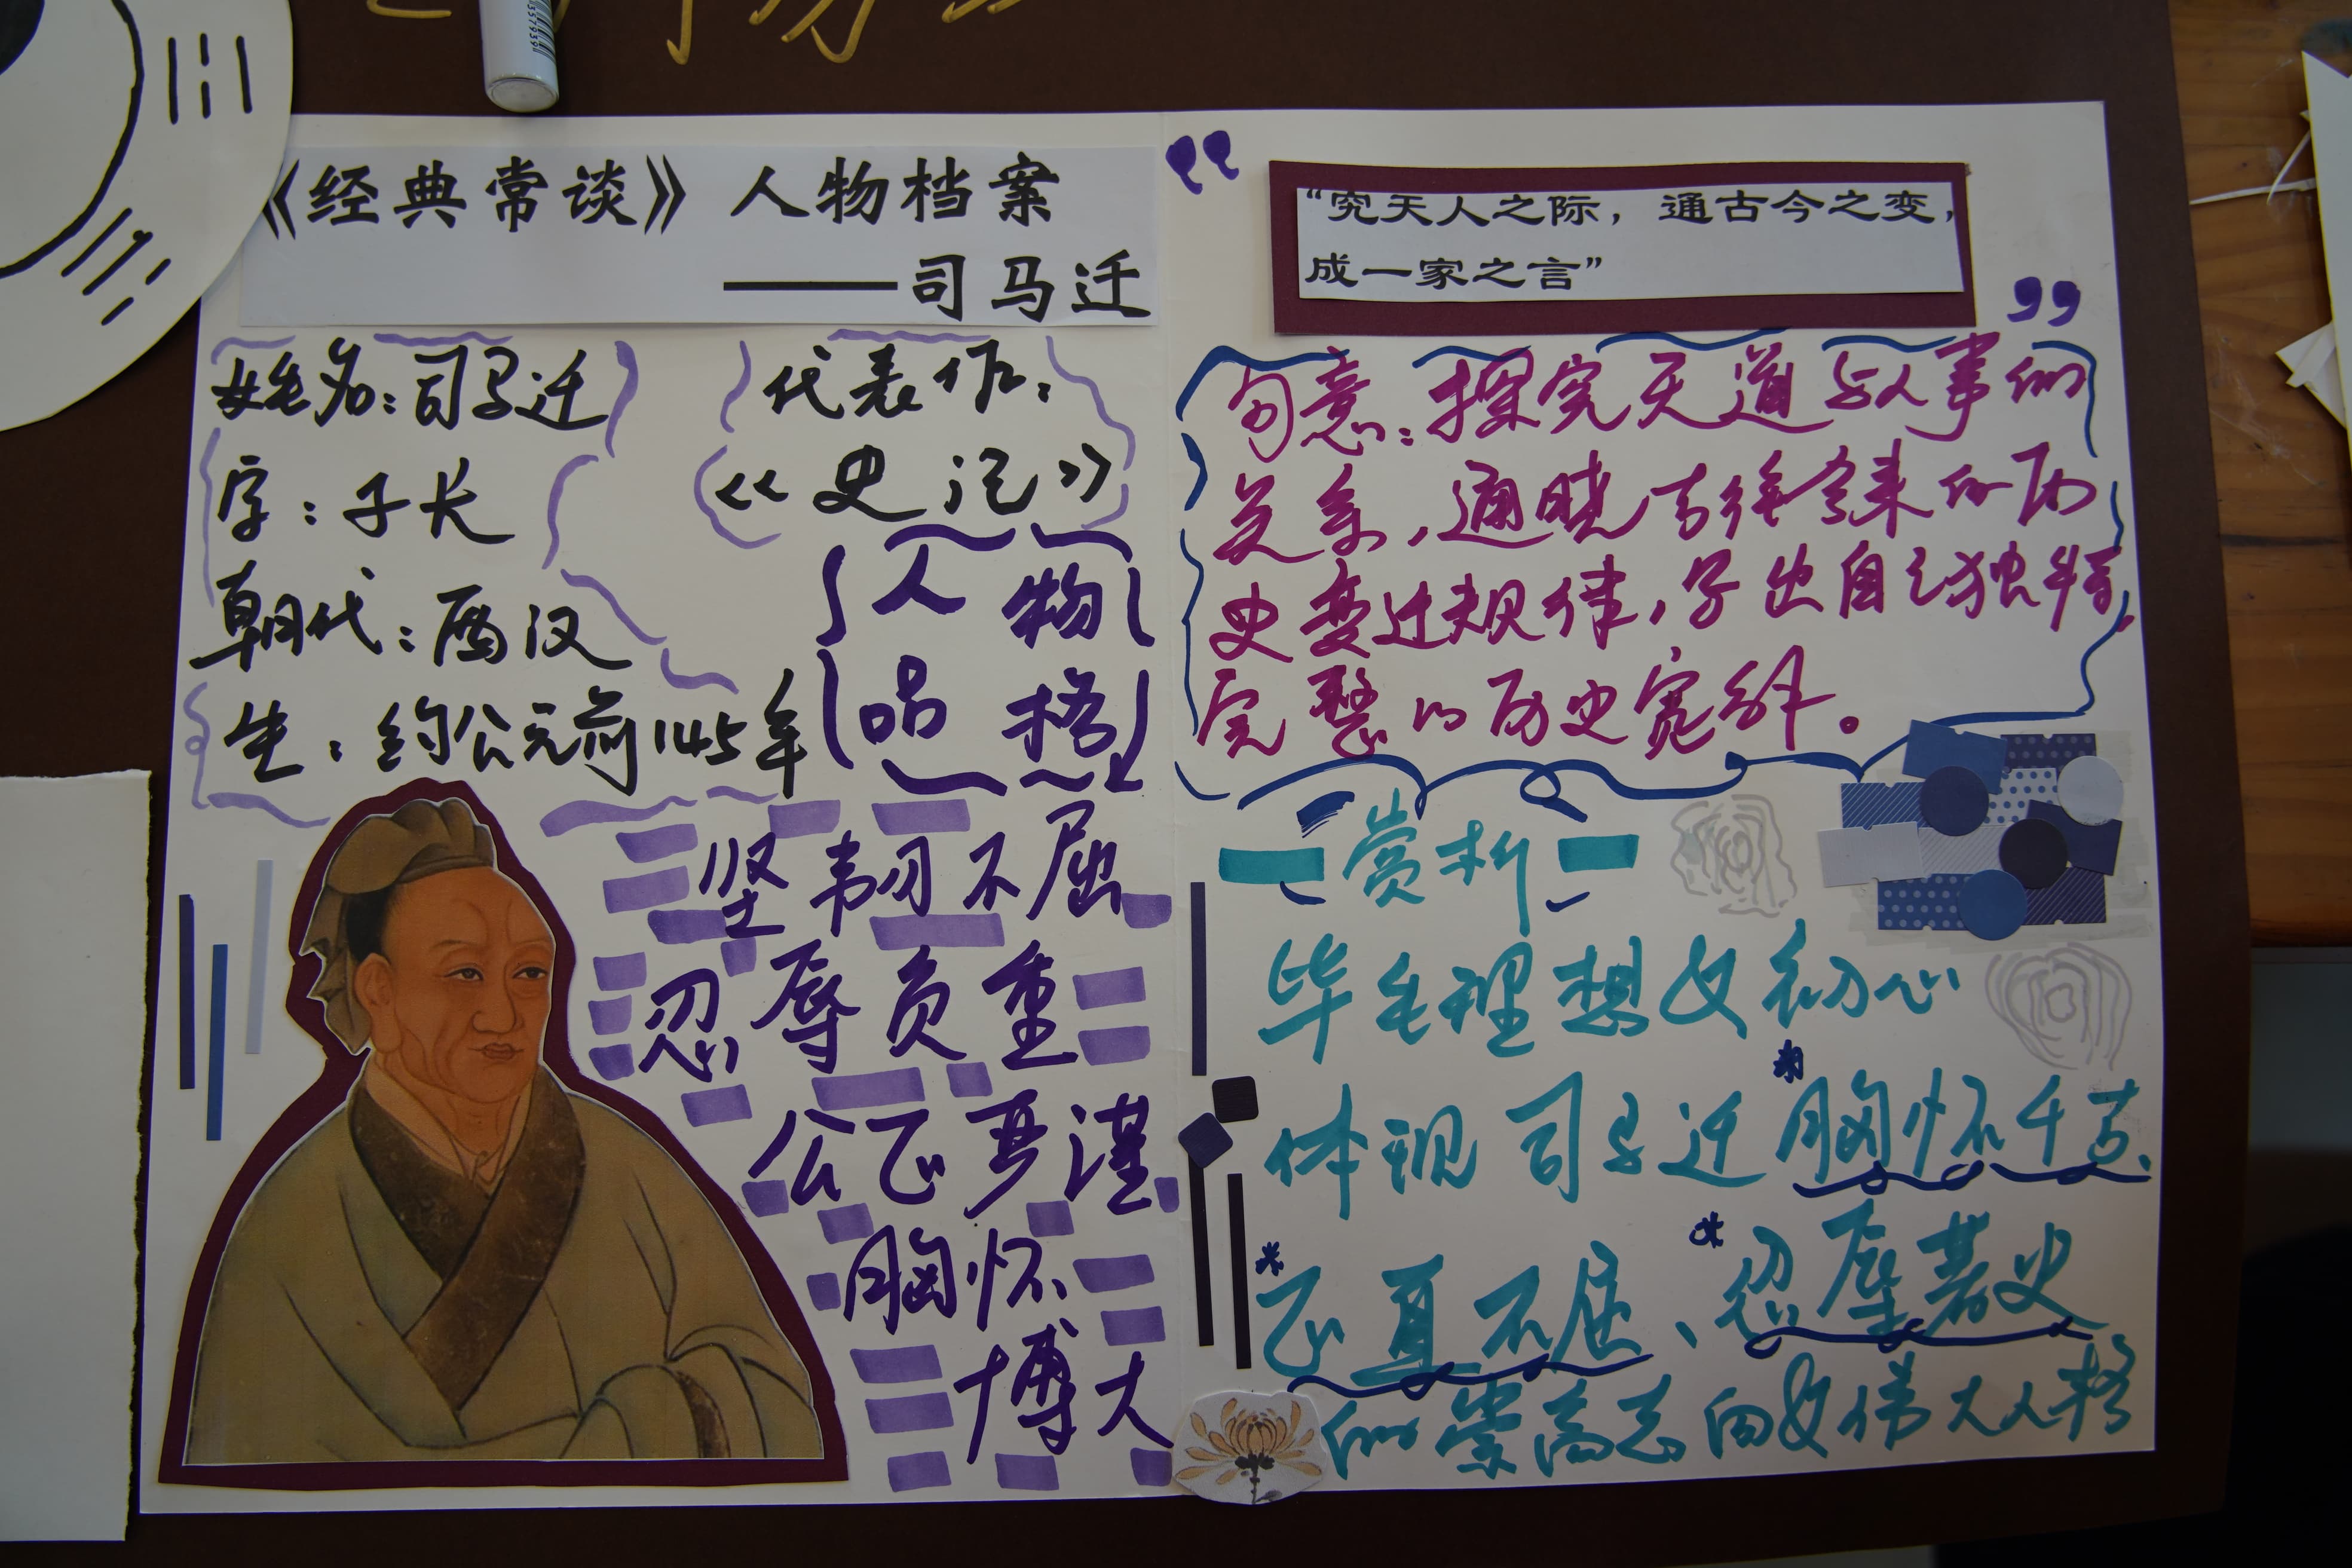 《经典常谈》人物档案
——司马迁
姓名：司马迁
字：子长
朝代：西汉
生：约公元前145年
代表作：
《史记》
人物
品格
坚韧不屈
忍辱负重
公正严谨
胸怀
博大
“究天人之际，通古今之变，
成一家之言”
句意：探究天道与人事的
关系，通晓古往今来的历
史变迁规律，写出自己独特，
完整的历史
赏析
毕生理想与初心
体现司马迁胸怀千古、
正直不屈、忍辱著史
的崇高志向与伟大人格